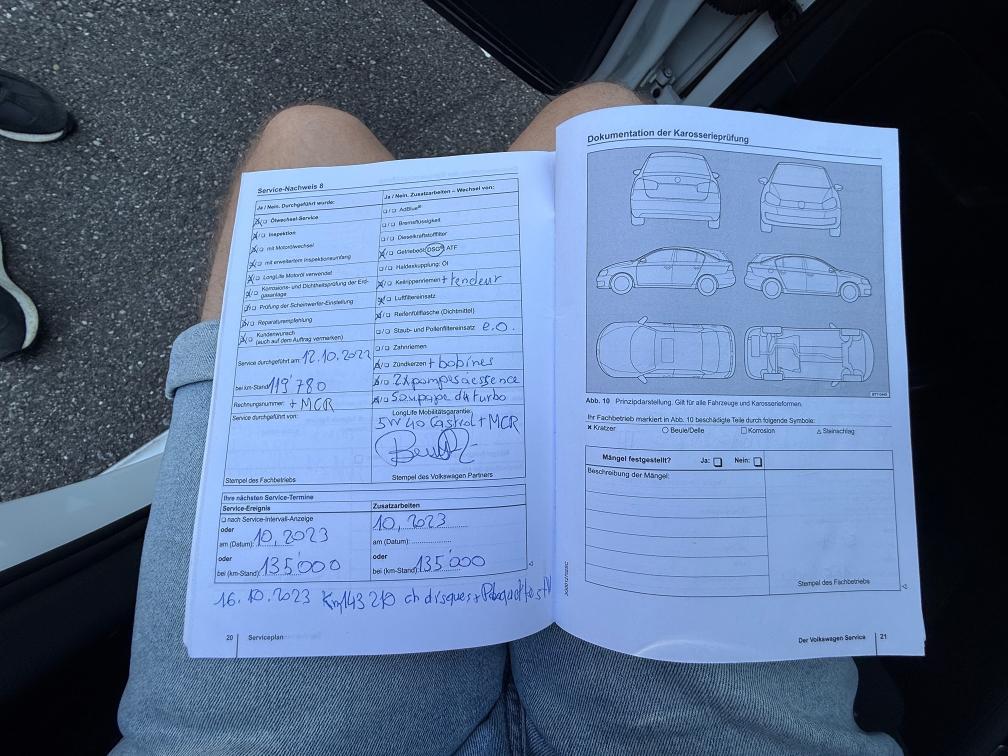 Service-Nachweis 8
Ja / Nein. Durchgeführt wurde:
Ölwechsel-Service
Inspektion
mit Motorölwechsel
mit erweitertem Inspektionsumfang
LongLife Motoröl verwendet
Korrosions- und Dichtheitsprüfung der Erd-
gasanlage
Prüfung der Scheinwerfer-Einstellung
Reparaturempfehlung
Kundenwunsch
(auch auf dem Auftrag vermerken)
Service durchgeführt am: 12.10.2022
bei km-Stand 119'780
Rechnungsnummer: + MCR
Service durchgeführt von:
Stempel des Fachbetriebs
Ja / Nein. Zusatzarbeiten – Wechsel von:
AdBlue®
Bremsflüssigkeit
Dieselkraftstofffilter
Getriebeöl: DSG® ATF
Haldexkupplung: Öl
Keilrippenriemen + tendeur
Luftfiltereinsatz
Reifenfüllflasche (Dichtmittel)
Staub- und Pollenfiltereinsatz e.o.
Zahnriemen
Zündkerzen + bobines
2x pompes a essence
Soupape du turbo
LongLife Mobilitätsgarantie:
5W40 Castrol + MCR
Stempel des Volkswagen Partners
Ihre nächsten Service-Termine
Service-Ereignis
nach Service-Intervall-Anzeige
oder
am (Datum): 10,2023
oder
bei (km-Stand): 135'000
Zusatzarbeiten
10,2023
am (Datum):
oder
bei (km-Stand): 135'000
16.10.2023 Km 143 210 ch disques +
20 Serviceplan
Dokumentation der Karosserieprüfung
Abb. 10 Prinzipdarstellung. Gilt für alle Fahrzeuge und Karosserieformen.
Ihr Fachbetrieb markiert in Abb. 10 beschädigte Teile durch folgende Symbole:
Kratzer Beule/Delle Korrosion Steinschlag
Mängel festgestellt? Ja: Nein:
Beschreibung der Mängel:
Stempel des Fachbetriebs
Der Volkswagen Service 21